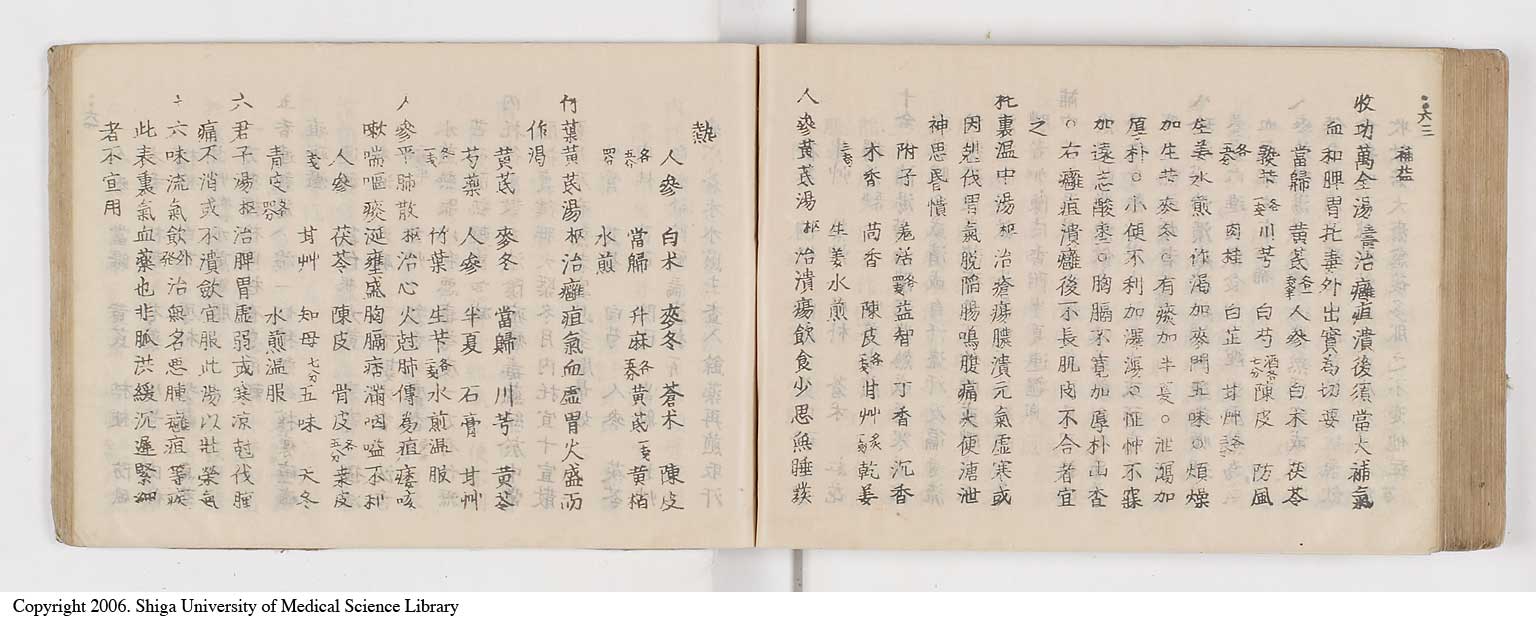 六三
補益
收功萬全湯 治癰疽潰後須當大補氣
血和脾胃托毒外出實為切要
當歸 黃芪 人參 白朮 茯苓
川芎 白芍 陳皮 防風
肉桂 白芷 甘艸
生姜水煎 作渴加麥門五味 煩燥
加生芐麥冬 有痰加半夏 泄瀉加
厚朴 小便不利加澤瀉 怔忡不寐
加遠志酸棗 胸膈不寬加厚朴山查
右癰疽潰癰後不長肌肉不合者宜
之
托裏溫中湯 治瘡瘍膿潰元氣虛寒或
因剋伐胃氣脫陷腸鳴腹痛大便溏泄
神思昏憒
附子 羗活 益智 丁香 沉香
木香 茴香 陳皮 甘艸 乾姜
生姜水煎
人參黃芪湯 治潰瘍飲食少思無睡發
熱
人參 白朮 麥冬 蒼朮 陳皮
當歸 升麻 黃芪 黃栢
水煎
竹葉黃芪湯 治癰疽氣血虛胃火盛而
作渴
黃芪 麥冬 當歸 川芎 黃芩
芍藥 人參 半夏 石膏 甘艸
竹葉 生芐 水煎溫服
人參平肺散 治心火尅肺傳為疽痿咳
嗽喘嘔痰涎壅盛胸膈痞滿咽嗌不利
人參 茯苓 陳皮 骨皮 桑皮
甘艸 知母 五味 天冬
青皮 水煎溫服
六君子湯 治脾胃虛弱或寒凉尅伐腫
痛不消或不潰歛宜服此湯以壯榮氣
十六味流氣飲 治無名惡腫癰疽等疾
此表裏氣血藥也非脈洪緩沉遲緊細
者不宜用
Copyright 2006. Shiga University of Medical Science Library